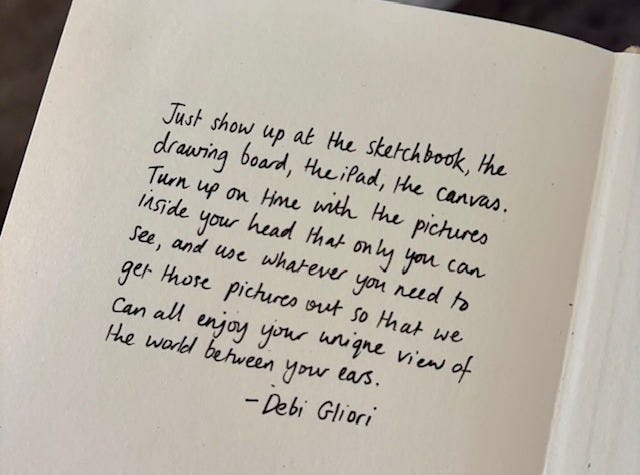 Just show up at the sketchbook, the
drawing board, the iPad, the canvas.
Turn up on time with the pictures
inside your head that only you can
see, and use whatever you need to
get those pictures out so that we
can all enjoy your unique view of
the world between your ears.
- Debi Gliori